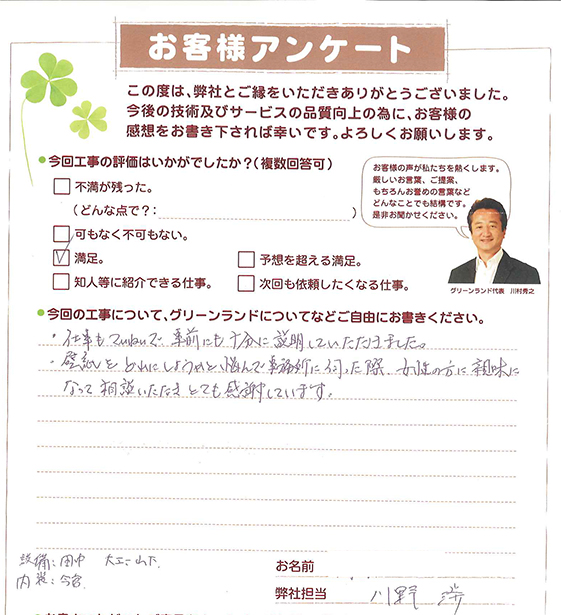 お客様アンケート
この度は、弊社とご縁をいただきありがとうございました。
今後の技術及びサービスの品質向上の為に、お客様の
感想をお書き下されば幸いです。よろしくお願いします。
今回工事の評価はいかがでしたか?(複数回答可)
不満が残った。
(どんな点で?: )
可もなく不可もない。
満足。
予想を超える満足。
知人等に紹介できる仕事。
次回も依頼したくなる仕事。
お客様の声が私たちを熱くします。
厳しいお言葉、ご提案、
もちろんお誉めの言葉など
どんなことでも結構です。
是非お聞かせください。
グリーンランド代表 川村秀之
今回の工事について、グリーンランドについてなどご自由にお書きください。
・仕事もていねいで事前にも十分に説明していただきました。
・壁紙をどれにしようかと悩んで事務所に伺った際、女性の方に親味に
なって相談いただきとても感謝しています。
設備:田中 大工:山下
内装:今宮
お名前
弊社担当 川野